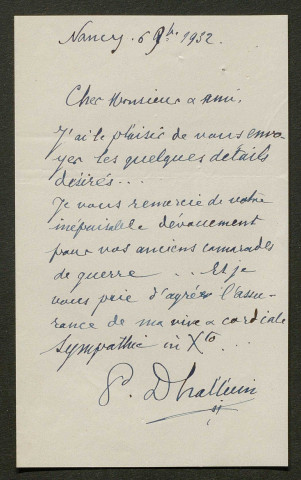 Nancy. 6 9bre 1932.
Cher Monsieur & ami.
J'ai le plaisir de vous envo
yer les quelques détails
désirés...
Je vous remercie de votre
inépuisable dévouement
pour vos anciens camarades
de guerre ... Et je
vous prie d'agréer l'assu-
rance de ma vive & cordiale
sympathie in Xto...
P. Dhalluin